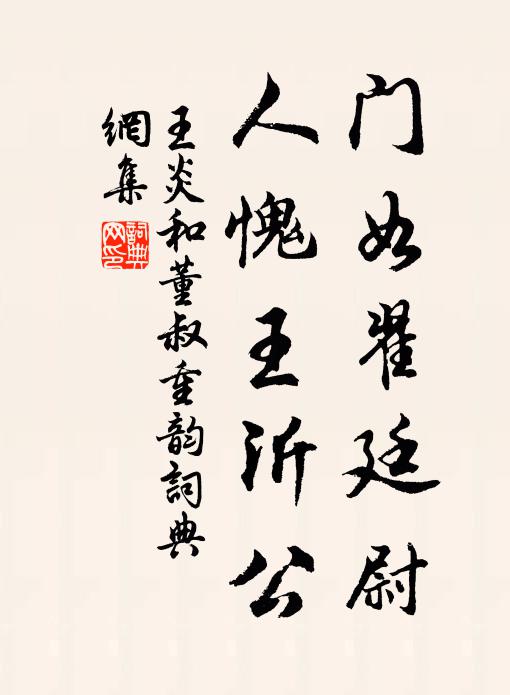 门如翟廷尉
人愧王沂公
王炎和董叔重韵词典
網集
詞典
网印